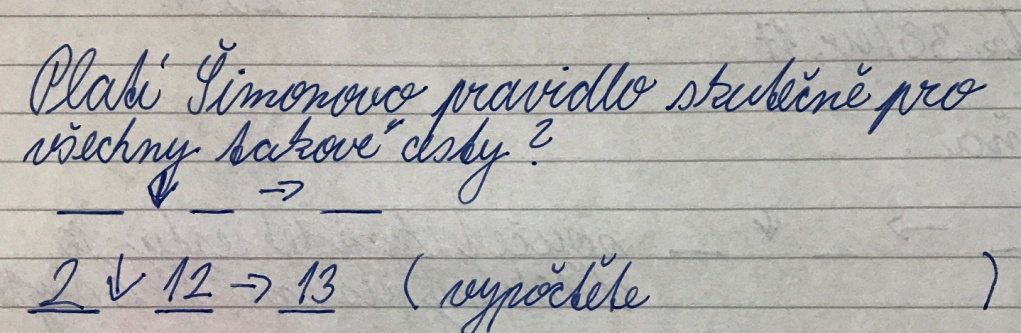 Platí Šimonovo pravidlo skutečně pro
všechny takové cesty?
__ ↓ __ → __
2 ↓ 12 → 13 (vypočtěte )